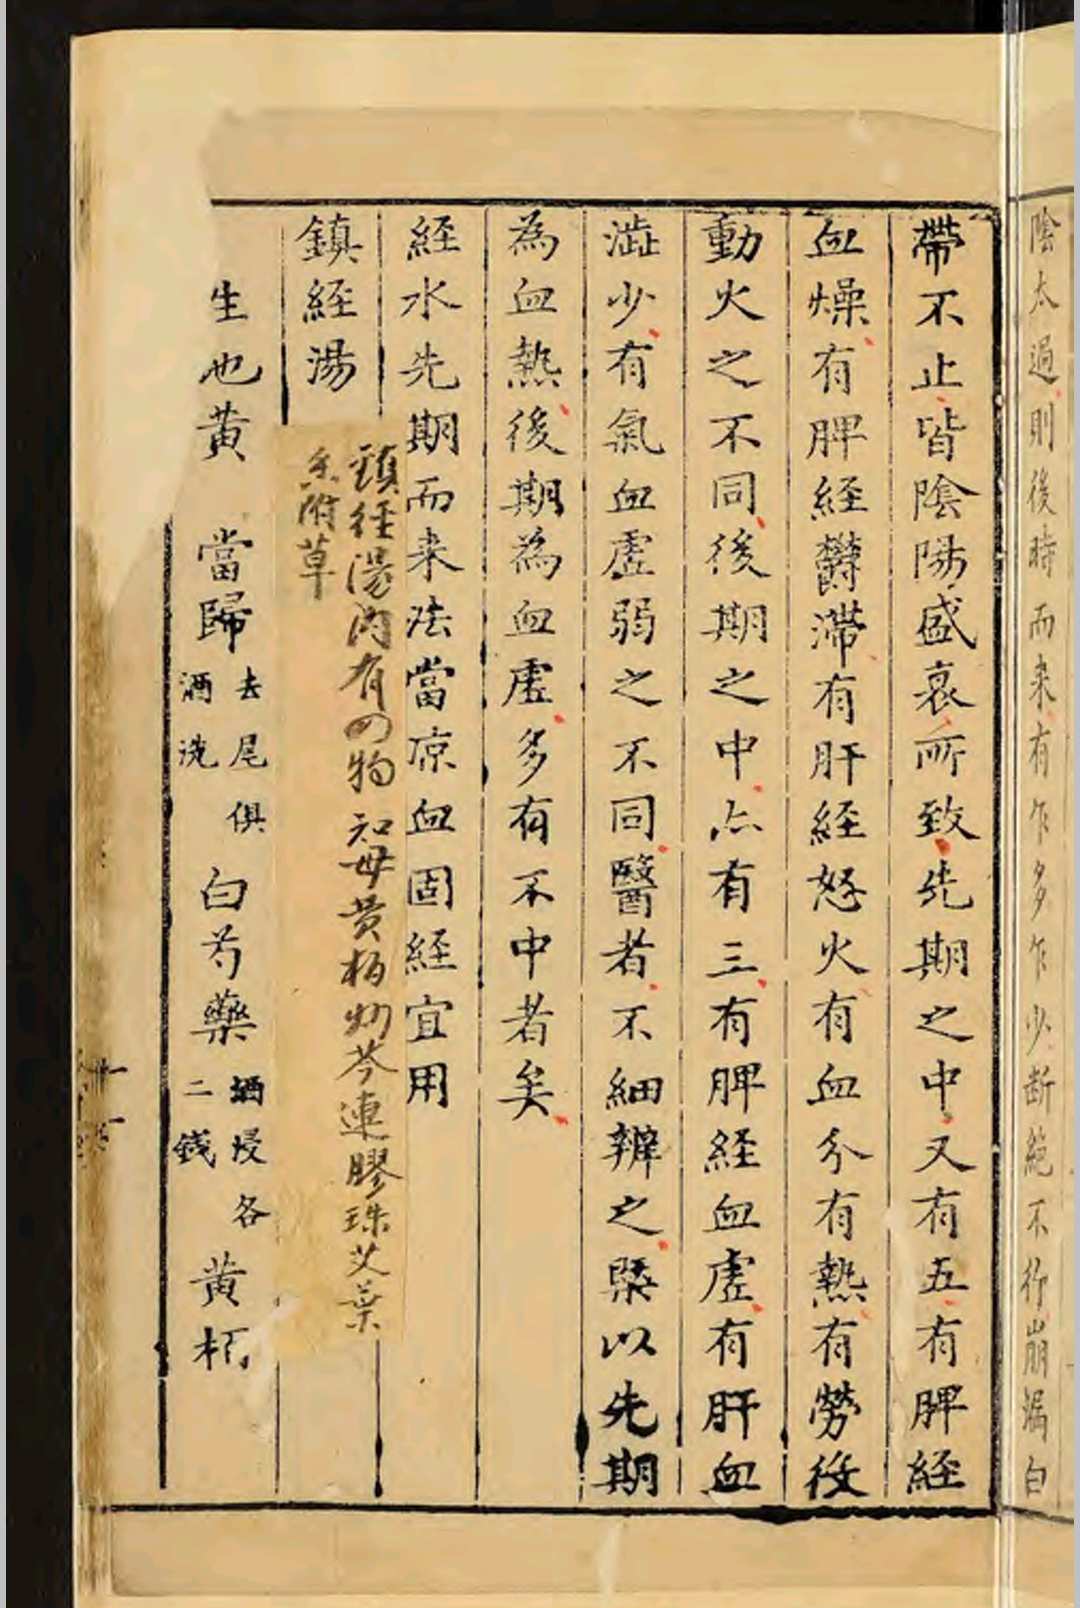 陰太過則後時而来有乍多乍少断絶不行崩漏白
帶不止皆陰陽盛衰所致先期之中又有五有脾経
血燥有脾経欝滞有肝経怒火有血分有熱有勞役
動火之不同後期之中亦有三有脾経血虛有肝血
澁少有氣血虛弱之不同醫者不細辨之槩以先期
為血熱後期為血虛多有不中者矣
経水先期而来法當凉血固経宜用
鎮経湯
鎮経湯内有四物知母黄柏炒芩連膠珠艾葉
附草
生也黄
當歸
去尾俱
酒洗
白芍藥
酒浸各
二錢
黄栢